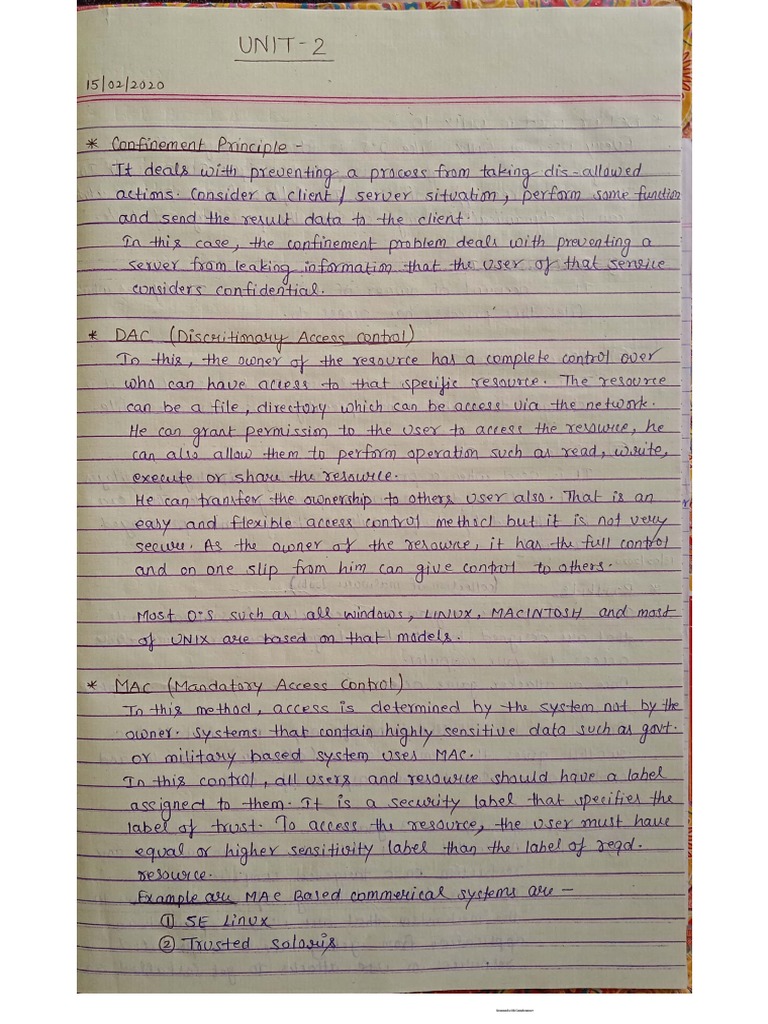 UNIT-2
15/02/2020
* Confinement Principle -
It deals with preventing a process from taking dis-allowed
actions. Consider a client / server situation, perform some function
and send the result data to the client.
In this case, the confinement problem deals with preventing a
server from leaking information that the user of that service
considers confidential.
* DAC (Discritionary Access control)
In this, the owner of the resource has a complete control over
who can have access to that specific resource. The resource
can be a file, directory which can be access via the network.
He can grant permission to the user to access the resource, he
can also allow them to perform operation such as read, write,
execute or share the resource.
He can transfer the ownership to others user also. That is an
easy and flexible access control method but it is not very
secure. As the owner of the resource, it has the full control
and on one slip from him can give control to others.
Most O.S such as all windows, LINUX, MACINTOSH and most
of UNIX are based on that models.
* MAC (Mandatory Access Control)
In this method, access is determined by the system not by the
owner. Systems that contain highly sensitive data such as govt.
or military based system uses MAC.
In this control, all users and resource should have a label
assigned to them. It is a security label that specifies the
label of trust. To access the resource, the user must have
equal or higher sensitivity label than the label of reqd.
resource.
Example are MAC Based commerical systems are -
① SE Linux
② Trusted solaris